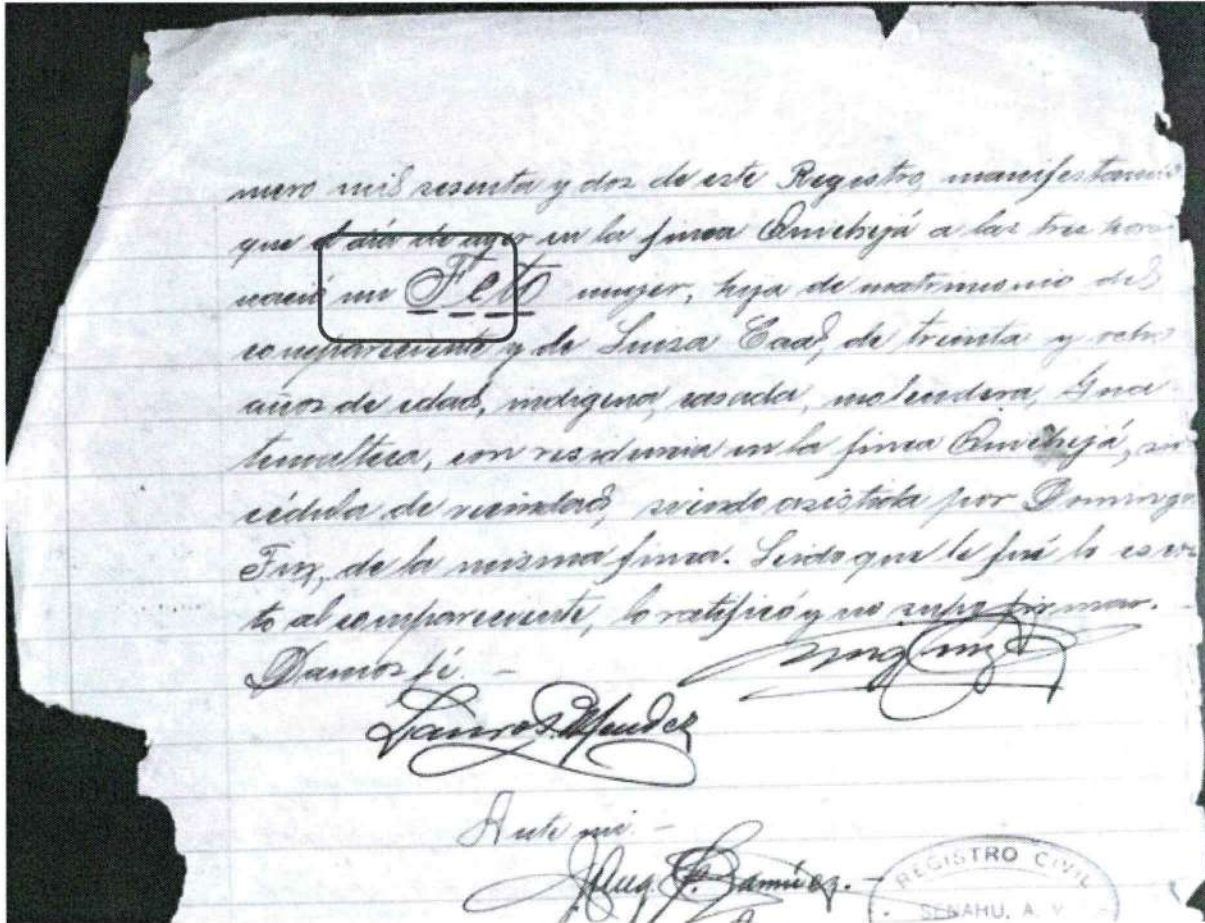 mero mil sesenta y dos de este Registro, manifestando
que el día de ayer en la finca Quichijá a las tres horas
nació un Feto mujer, hija de matrimonio del
compareciente y de Luisa Caal, de treinta y ocho
años de edad, indígena, casada, molendera, Gua
temalteca, con residencia en la finca Quichijá, sin
cédula de vecindad, siendo asistida por Domingo
de la misma finca. Leido que le fué lo escri
to al compareciente, lo ratificó y no supo firmar.
Damos fé. -
Lauro Mendez
Ante mi. -
Ramírez. -
REGISTRO CIVIL
SENAHU, A. V.